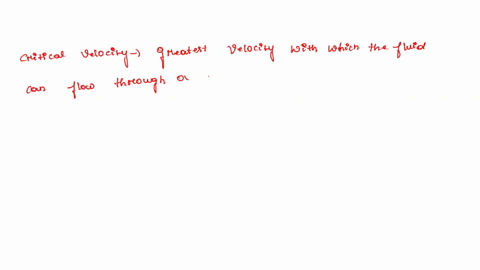 Critical Velocity → greatest Velocity with which the fluid
can flow through a